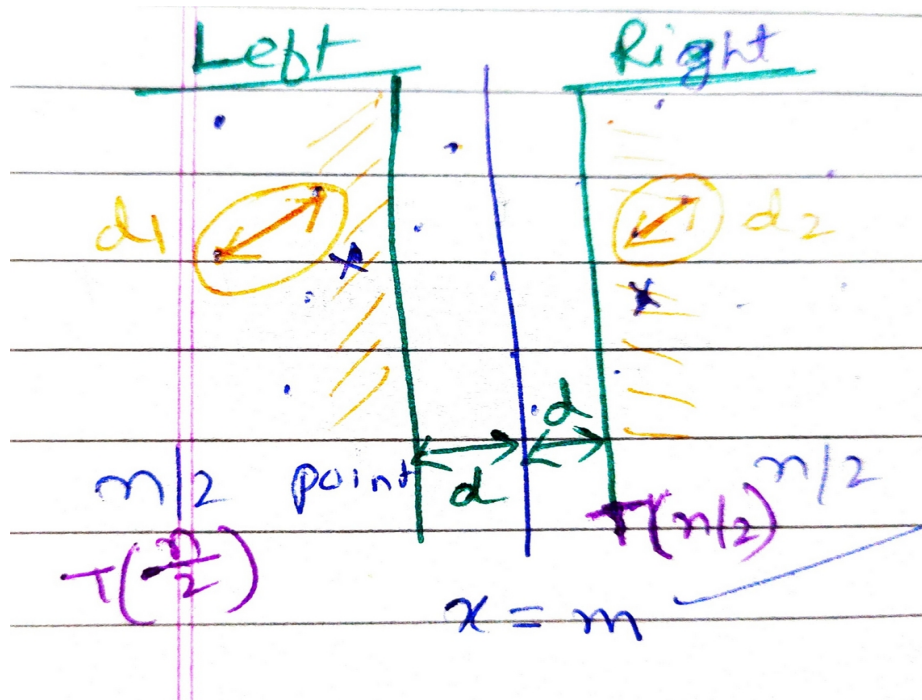 Left Right
d1 d2
d
n/2 point d n/2
T(n/2) T(n/2)
x = m